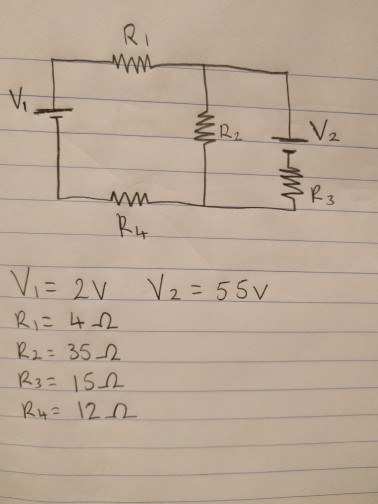 R1
V1
R2
V2
R3
R4
V1 = 2V V2 = 55V
R1 = 4Ω
R2 = 35Ω
R3 = 15Ω
R4 = 12Ω